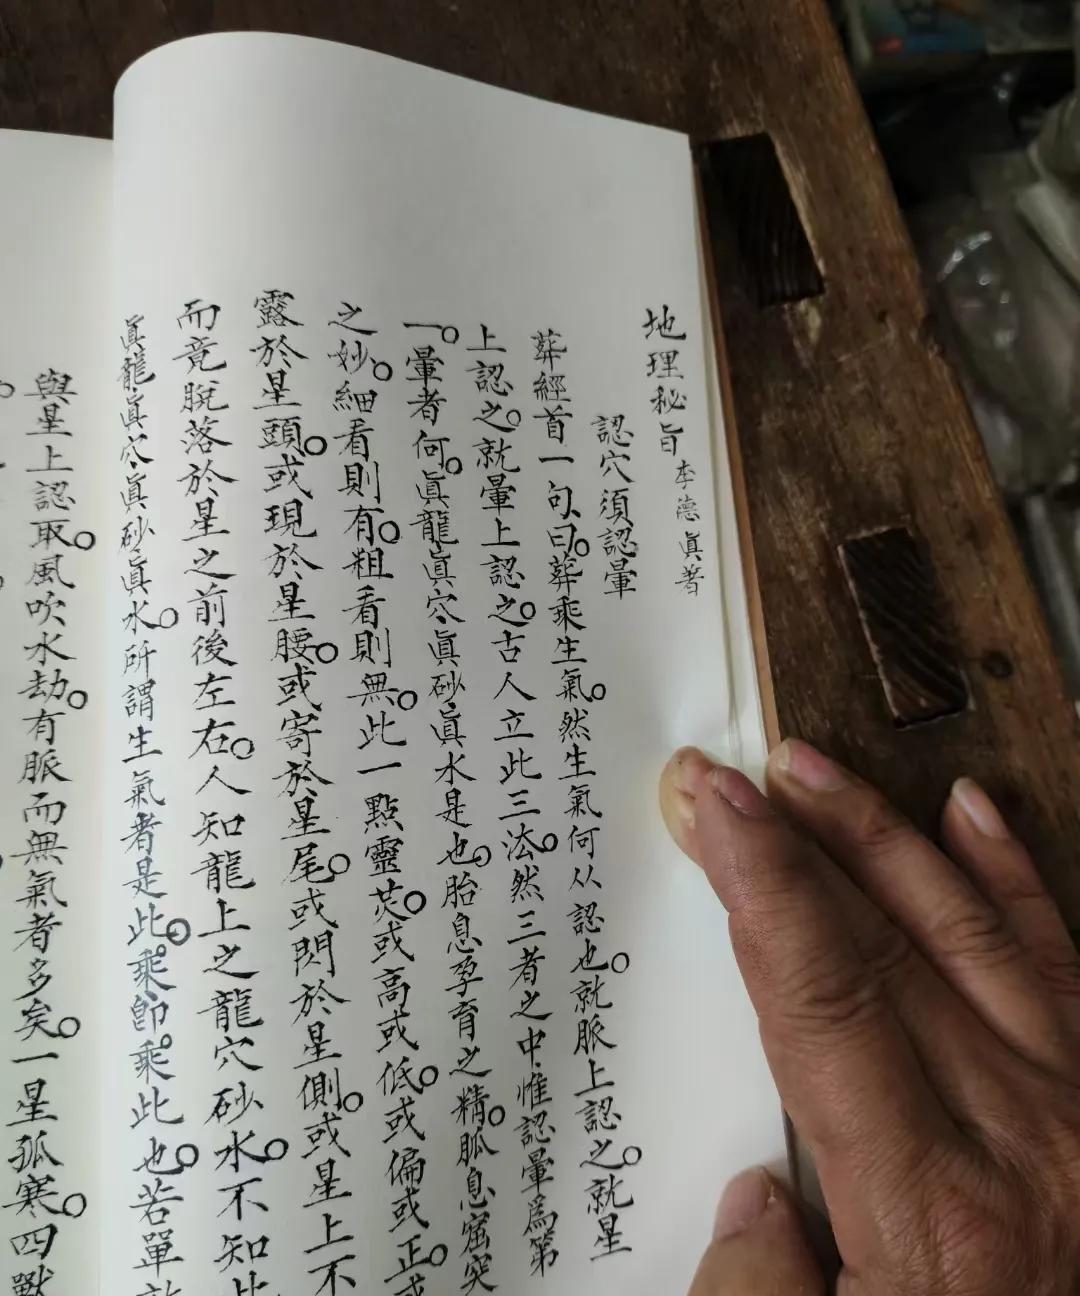 地理秘旨 李德眞著
認穴須認暈
葬經首一句、曰。葬乘生氣。然生氣何从認也。就脈上認之。就星
上認之。就暈上認之。古人立此三法。然三者之中、惟認暈爲第
一。暈者何。眞龍、眞穴、眞砂、眞水是也。胎息孕育之精。胍息窟突
之妙。細看則有。粗看則無。此一點靈荧。或高或低。或偏或正。或
露於星頭。或現於星腰。或寄於星尾。或閃於星側。或星上不
而竟脫落於星之前後左右。人知龍上之龍穴砂水。不知此
眞龍、眞穴、眞砂、眞水。所謂生氣者是此。乘卽乘此也。若單
與星上認取。風吹水劫。有脈而無氣者多矣。一星孤寒。四獸